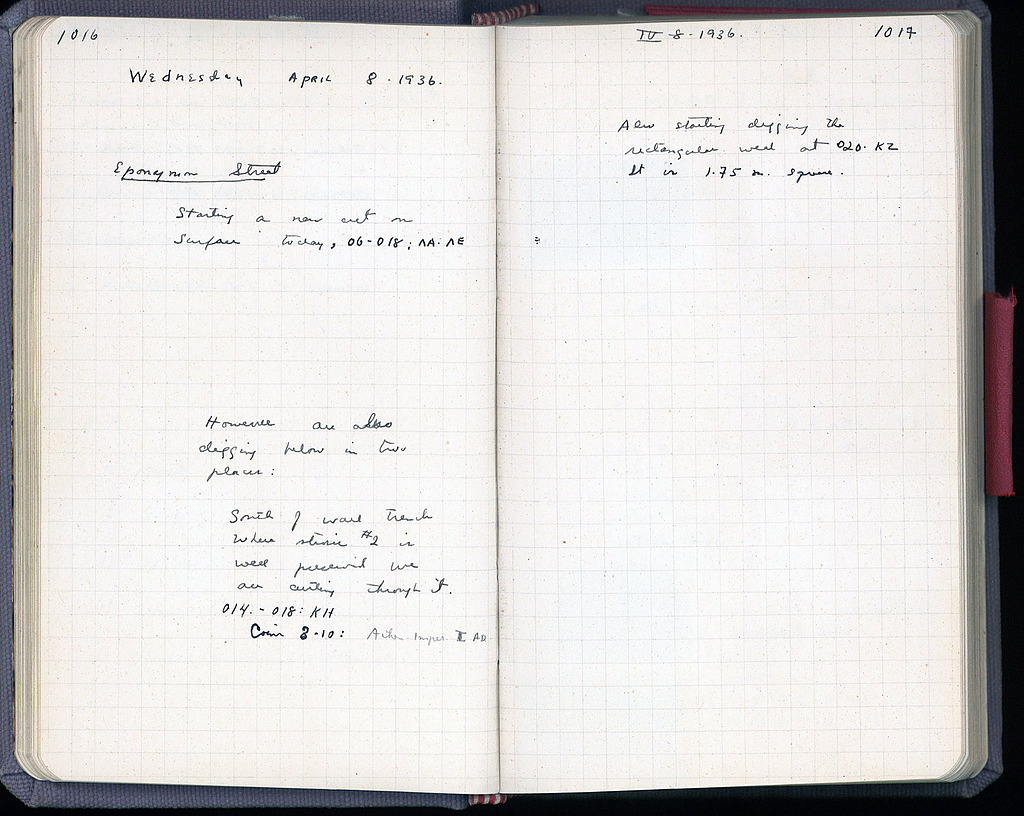 1016
Wednesday April 8 · 1936.
Eponymon Street
Starting a new cut on
surface today, 06-018; ΛΑ-ΛΕ
However are also
digging below in two
places:
South of wall trench
where stosis #2 is
well preserved we
are cutting through it.
014. - 018: ΚΗ
Coin 8-10: Athen. Imper. II AD
IV - 8 - 1936.
1017
Also starting digging the
rectangular well at 020. ΚΖ
It is 1.75 m. square.